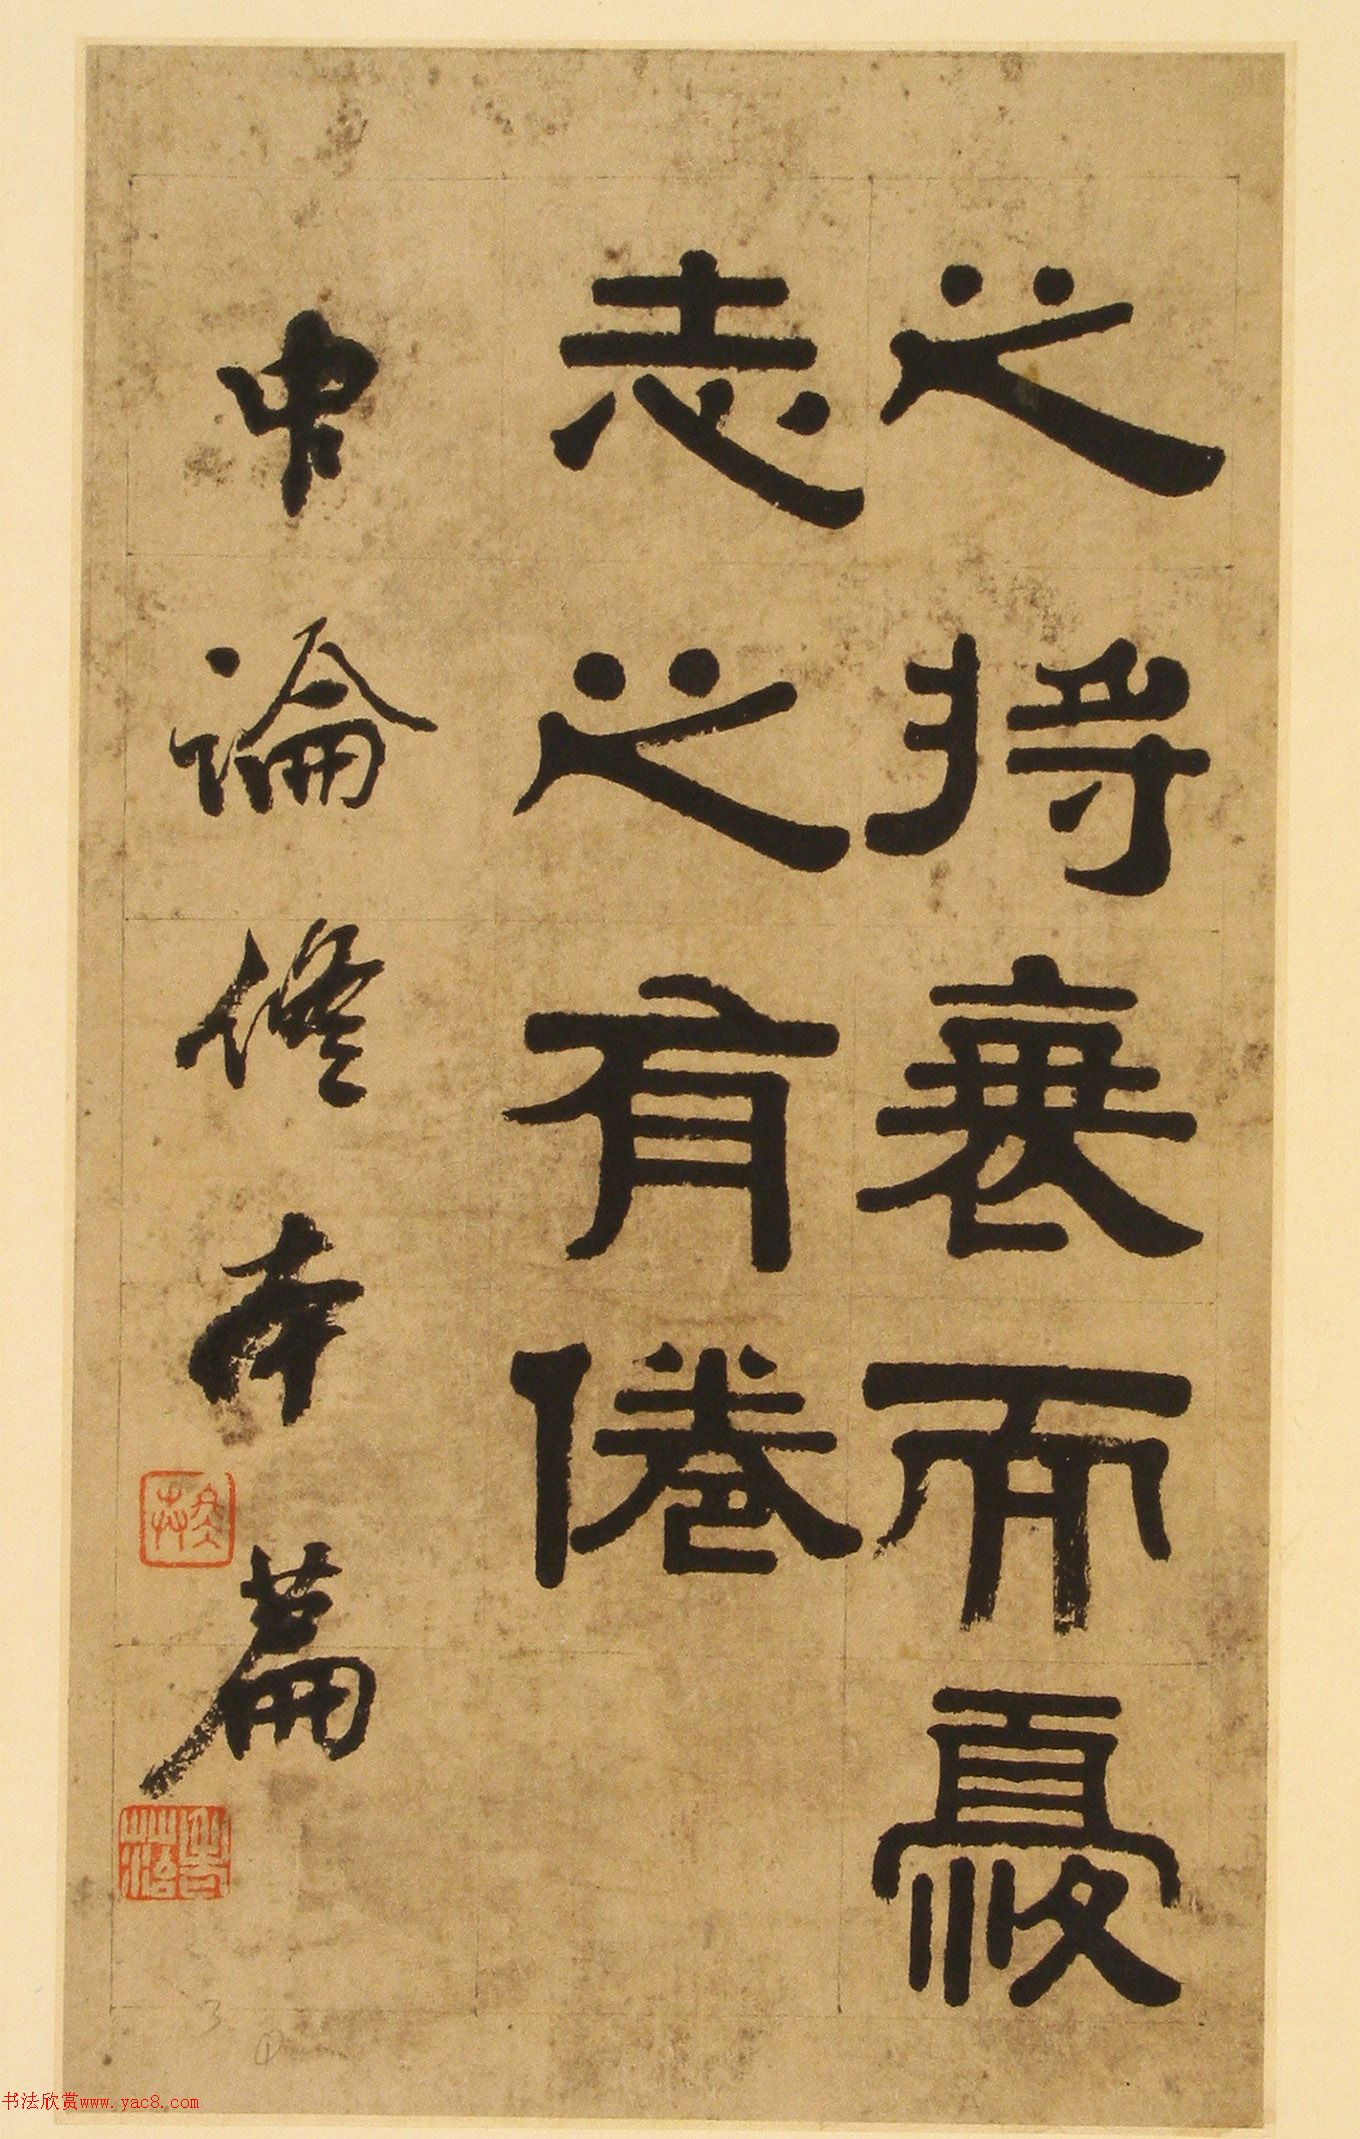 之将衰而憂
志之有倦
中論修本篇
书法欣赏www.yac8.com